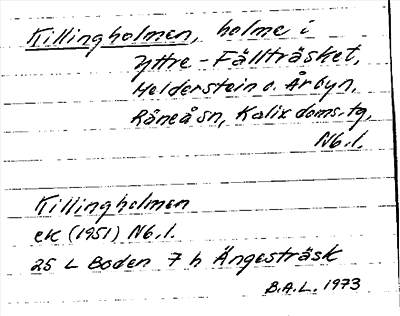 Killingholmen, holme i
Yttre-Fällträsket,
Melderstein o. Årbyn,
Råneå sn, Kalix doms. tg,
Nb. l.
Killingholmen
ek (1951) Nb. l.
25 L Boden 7 h Ängesträsk
B.A.L. 1973